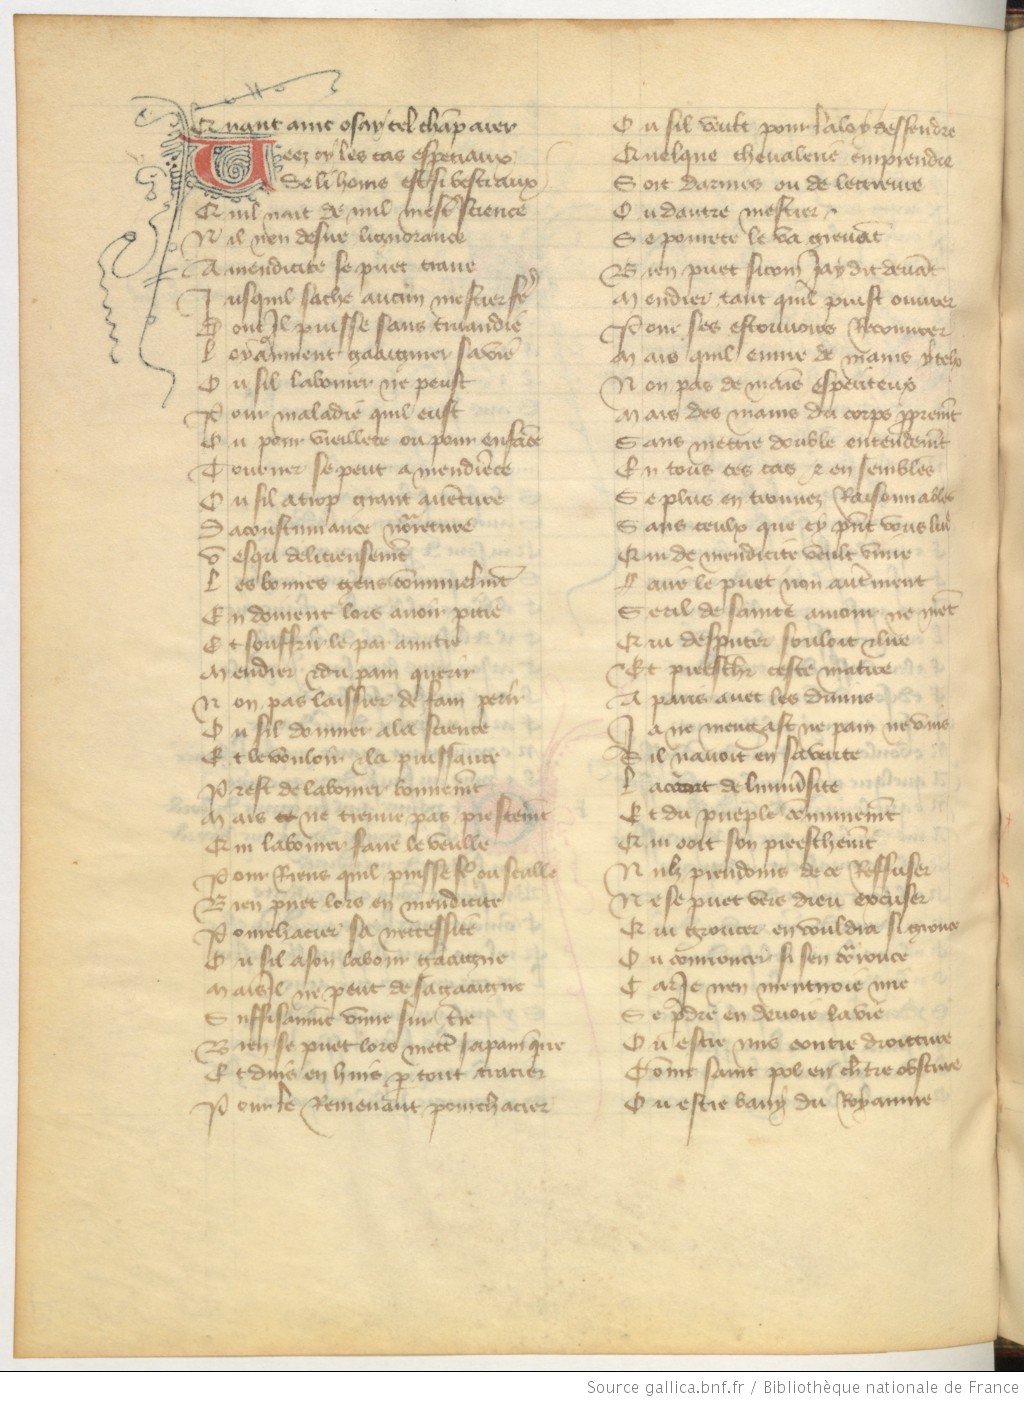 Et nant avic osay tel champ aier
Veez cy les cas especiaux
Se li home est si bestiaux
Qr nil nait de nul mest science
N il nen desire lignorance
A mendicite se puet traire
J usquil sache aucun mestier fe
D ont Jl puisse sans truandie
L oyaument gaaigner sa vie
O u sil labourer ne peust
P our maladie quil eust
O u pour vieillece ou pour enfance
T ourner se peut a mendience
O u sil a trop grant auenture
D acoustumance norreture
V esqui delicieusement
L es bonnes gens communelment
E n doiuent lors auoir pitie
E t souffrir le par amitie
M endier et du pain querir
N on pas laissier de fain perir
O u sil donner a la science
E t le vouloir et la puissance
P rest de labourer bonnement
M ais ne treuue pas prestement
Qui labourer faire le veulle
P our Riens quil puisse fe ou seulle
B ien puet lors en mendicite
P ourchacier sa neccessite
O u sil a son labour gaaigne
M ais Jl ne peut de sa gaaigne
S uffisamment viure sur tre
B ien se puet lors mett a pain querre
E t duis en huis par tout tracier
P our le Remenant pourchacier
O u sil veult pour la loy deffendre
Quelque cheualerie emprendre
S oit darmes ou de lecteure
O u dautre mestier
S e pourete le va greuant
B ien puet sicom Jay dit deuant
M endier tant quil puist ouurer
P our ses estouuoirs Recouurer
M ais quil euure de mains ytelx
N on pas de mains esperiteux
M ais des mains du corps proprement
S ans mettre double entendement
E n tous ces cas et en semblez
S e plus en trouuez Raisonnables
S ans ceulx que cy present vous liure
Qui de mendicite veult viure
F aire le puet non autrement
S e cil de saincte amour ne ment
Qui desputer souloit et lire
Et preescher ceste matire
A paris auec les diuins
J a ne meugast ne pain ne vins
S il nauoit en sa verite
L acort de luniuersite
E t du pueple communement
Qui ooit son preeschement
N ulz preudoms de ce Reffuser
N e se puet vers dieu excuser
Qui groucer en vouldra si grouce
O u courroucer si sen courrouce
C ar Je nen mentiroie mie
S e perdre en deuoie la vie
O u estre mis contre droitture
Comme saint pol en chartre obscure
O u estre baniz du Royaume